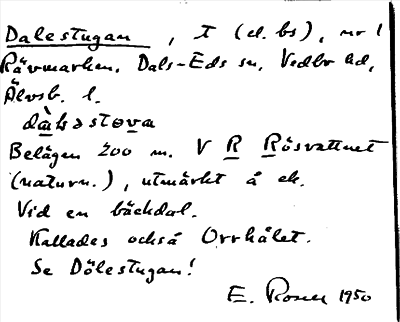 Dalestugan, T (el. bs), nr 1
Rävmarken, Dals-Eds sn, Vedbo hd,
Älvsb. l.
Belägen 200 m. V R Rösvattnet
(naturn.), utmärkt å ek.
Vid en bäckdal.
Kallades också Orrhålet.
Se Dölestugan!
E. Rosell 1950